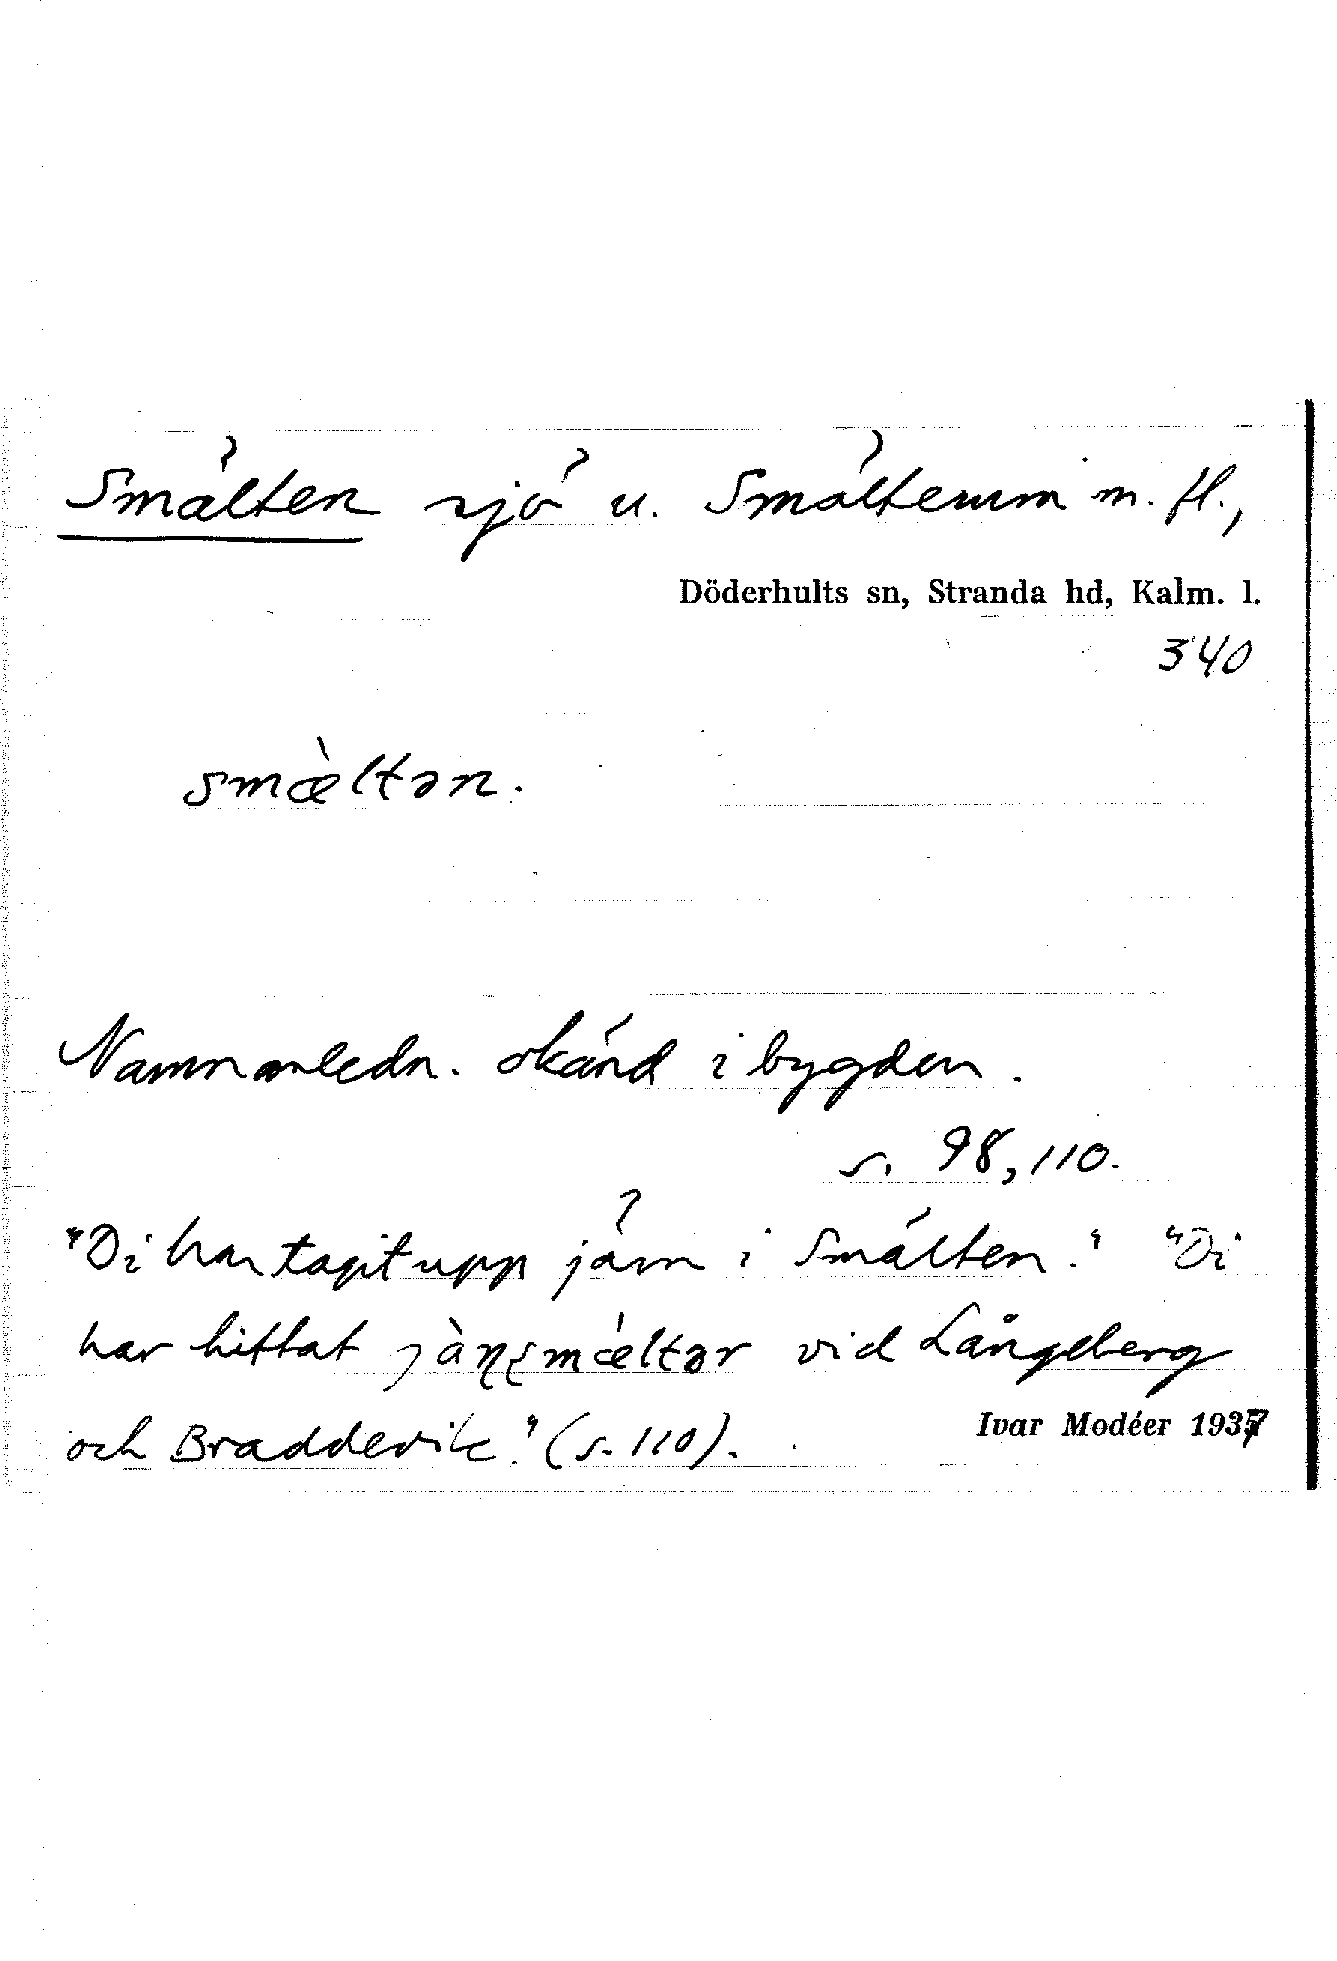 Smälten sjö u. Smältemm m. fl.,
Döderhults sn, Stranda hd, Kalm. l.
340
smæ̀ltən.
Namnanledn. okänd i bygden.
s. 98, 110.
"Di har tagit upp järn i Smälten." "Di
har hittat jàɳʂmæ̀ltər vid Långeberg
och Braddevik." (s. 110).
Ivar Modéer 1937